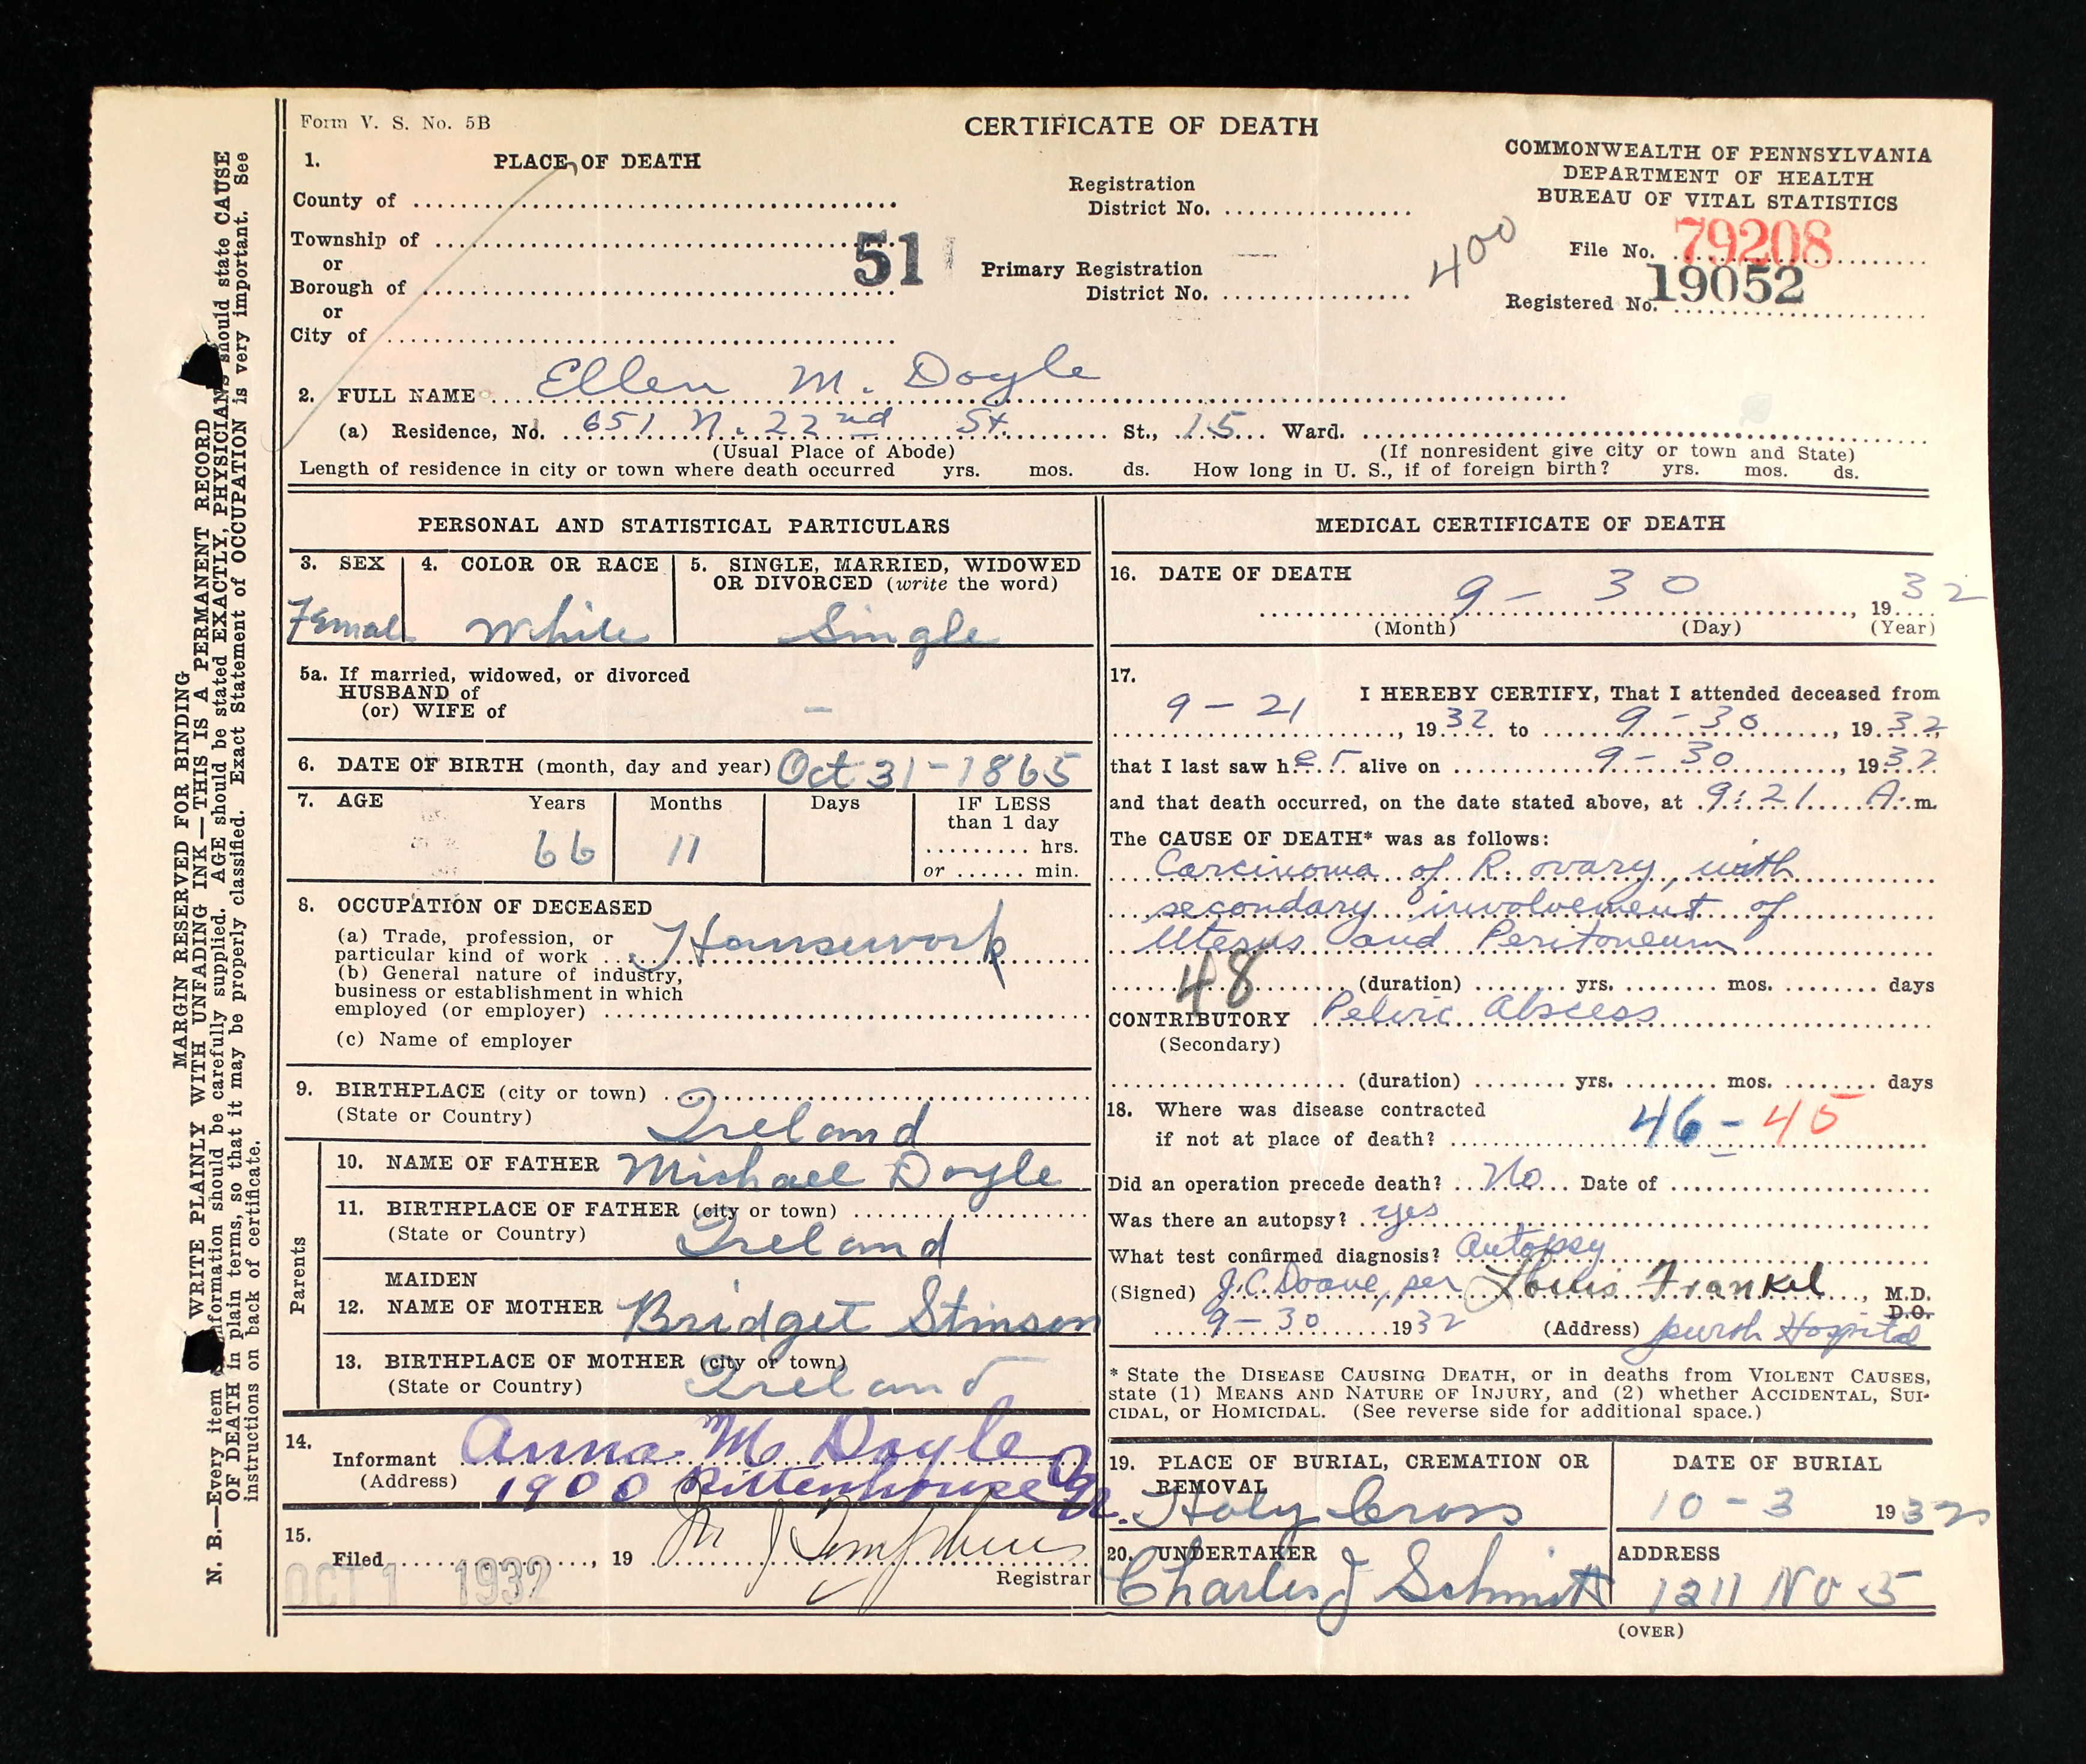 Form V. S. No. 5B
CERTIFICATE OF DEATH
COMMONWEALTH OF PENNSYLVANIA
DEPARTMENT OF HEALTH
BUREAU OF VITAL STATISTICS
1. PLACE OF DEATH
County of
Township of
or
Borough of
or
City of
51
Registration
District No.
Primary Registration
District No.
400
File No. 79208
Registered No. 19052
2. FULL NAME Ellen M. Doyle
(a) Residence, No. 651 N. 22nd St St., 15 Ward.
(Usual Place of Abode) (If nonresident give city or town and State)
Length of residence in city or town where death occurred yrs. mos. ds. How long in U. S., if of foreign birth? yrs. mos. ds.
PERSONAL AND STATISTICAL PARTICULARS
3. SEX
Female
4. COLOR OR RACE
White
5. SINGLE, MARRIED, WIDOWED
OR DIVORCED (write the word)
Single
5a. If married, widowed, or divorced
HUSBAND of
(or) WIFE of –
6. DATE OF BIRTH (month, day and year) Oct 31-1865
7. AGE Years Months Days IF LESS
than 1 day
66 11 hrs.
or min.
8. OCCUPATION OF DECEASED
(a) Trade, profession, or
particular kind of work Housework
(b) General nature of industry,
business or establishment in which
employed (or employer)
(c) Name of employer
9. BIRTHPLACE (city or town)
(State or Country) Ireland
Parents
10. NAME OF FATHER Michael Doyle
11. BIRTHPLACE OF FATHER (city or town)
(State or Country) Ireland
MAIDEN
12. NAME OF MOTHER Bridget Stinson
13. BIRTHPLACE OF MOTHER (city or town)
(State or Country) Ireland
14. Informant Anna M Doyle
(Address) 1900 Rittenhouse Sq.
15.
Filed , 19
OCT 1 1932
Registrar
MEDICAL CERTIFICATE OF DEATH
16. DATE OF DEATH
9 – 30 , 1932
(Month) (Day) (Year)
17.
I HEREBY CERTIFY, That I attended deceased from
9 – 21 , 1932 to 9 – 30 , 1932,
that I last saw her alive on 9 – 30 , 1932
and that death occurred, on the date stated above, at 9:21 A. m.
The CAUSE OF DEATH* was as follows:
Carcinoma of R. ovary, with
secondary involvement of
Uterus and Peritoneum
48
(duration) yrs. mos. days
CONTRIBUTORY Pelvic Abscess
(Secondary)
(duration) yrs. mos. days
18. Where was disease contracted
if not at place of death? 46 – 45
Did an operation precede death? No Date of
Was there an autopsy? yes
What test confirmed diagnosis? Autopsy
(Signed) J.C. Doane, per Louis Frankel, M.D.
D.O.
9 – 30 1932 (Address) Jewish Hospital
* State the DISEASE CAUSING DEATH, or in deaths from VIOLENT CAUSES,
state (1) MEANS AND NATURE OF INJURY, and (2) whether ACCIDENTAL, SUI-
CIDAL, or HOMICIDAL. (See reverse side for additional space.)
19. PLACE OF BURIAL, CREMATION OR
REMOVAL
Holy Cross
DATE OF BURIAL
10 – 3 1932
20. UNDERTAKER
Charles J Schmitt
ADDRESS
1211 No 5
(OVER)
MARGIN RESERVED FOR BINDING
WRITE PLAINLY WITH UNFADING INK—THIS IS A PERMANENT RECORD
N. B.—Every item information should be carefully supplied. AGE should be stated EXACTLY, PHYSICIANS should state CAUSE
OF DEATH in plain terms, so that it may be properly classified. Exact Statement of OCCUPATION is very important. See
instructions on back of certificate.